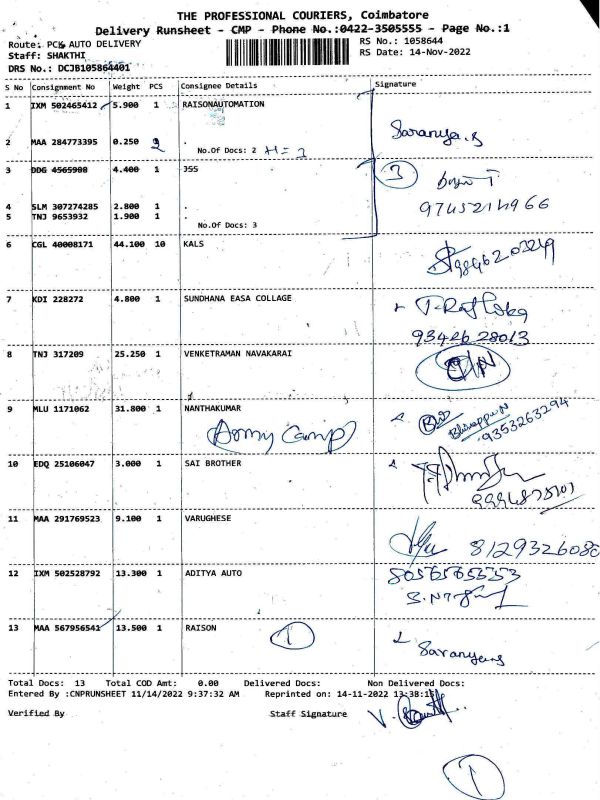 THE PROFESSIONAL COURIERS, Coimbatore
Delivery Runsheet - CMP - Phone No.:0422-3505555 - Page No.:1
Route: PCK AUTO DELIVERY RS No.: 1058644
Staff: SHAKTHI RS Date: 14-Nov-2022
DRS No.: DCJB105864401
S No Consignment No Weight PCS Consignee Details Signature
1 IXM 502465412 5.900 1 RAISONAUTOMATION
Saranya.s
2 MAA 284773395 0.250 2 .
No.Of Docs: 2
3 DDG 4565908 4.400 1 JSS 3
4 SLM 307274285 2.800 1 .
5 TNJ 9653932 1.900 1 .
No.Of Docs: 3
6 CGL 40008171 44.100 10 KALS
7 KDI 228272 4.800 1 SUNDHANA EASA COLLAGE
9342628013
8 TNJ 317209 25.250 1 VENKETRAMAN NAVAKARAI
9 MLU 1171062 31.800 1 NANTHAKUMAR
Army Camp 9353263294
10 EDQ 25106047 3.000 1 SAI BROTHER
11 MAA 291769523 9.100 1 VARUGHESE
8129326080
12 IXM 502528792 13.300 1 ADITYA AUTO
13 MAA 567956541 13.500 1 RAISON 1
Saranya.s
Total Docs: 13 Total COD Amt: 0.00 Delivered Docs: Non Delivered Docs:
Entered By :CNPRUNSHEET 11/14/2022 9:37:32 AM Reprinted on: 14-11-2022 13:38:15
Verified By Staff Signature
1